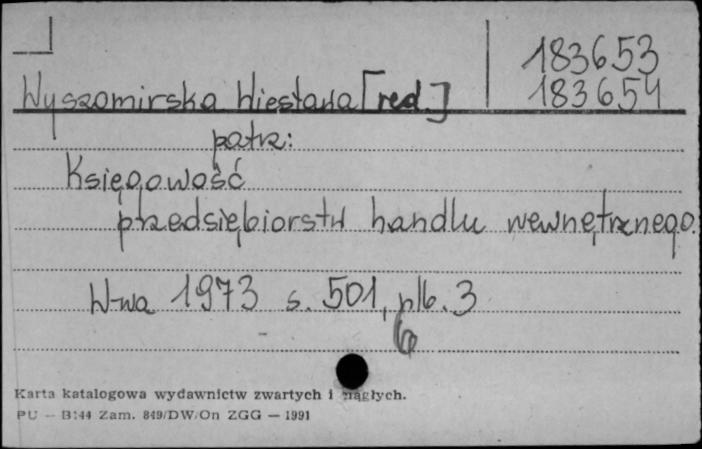 183653
Wyszomirska Wiesława [red.] 183654
patrz:
Księgowość
przedsiębiorstw handlu wewnętrznego.
W-wa 1973 s. 501, nlb. 3
Karta katalogowa wydawnictw zwartych i ciągłych.
PU — B:44 Zam. 849/DW/On ZGG — 1991